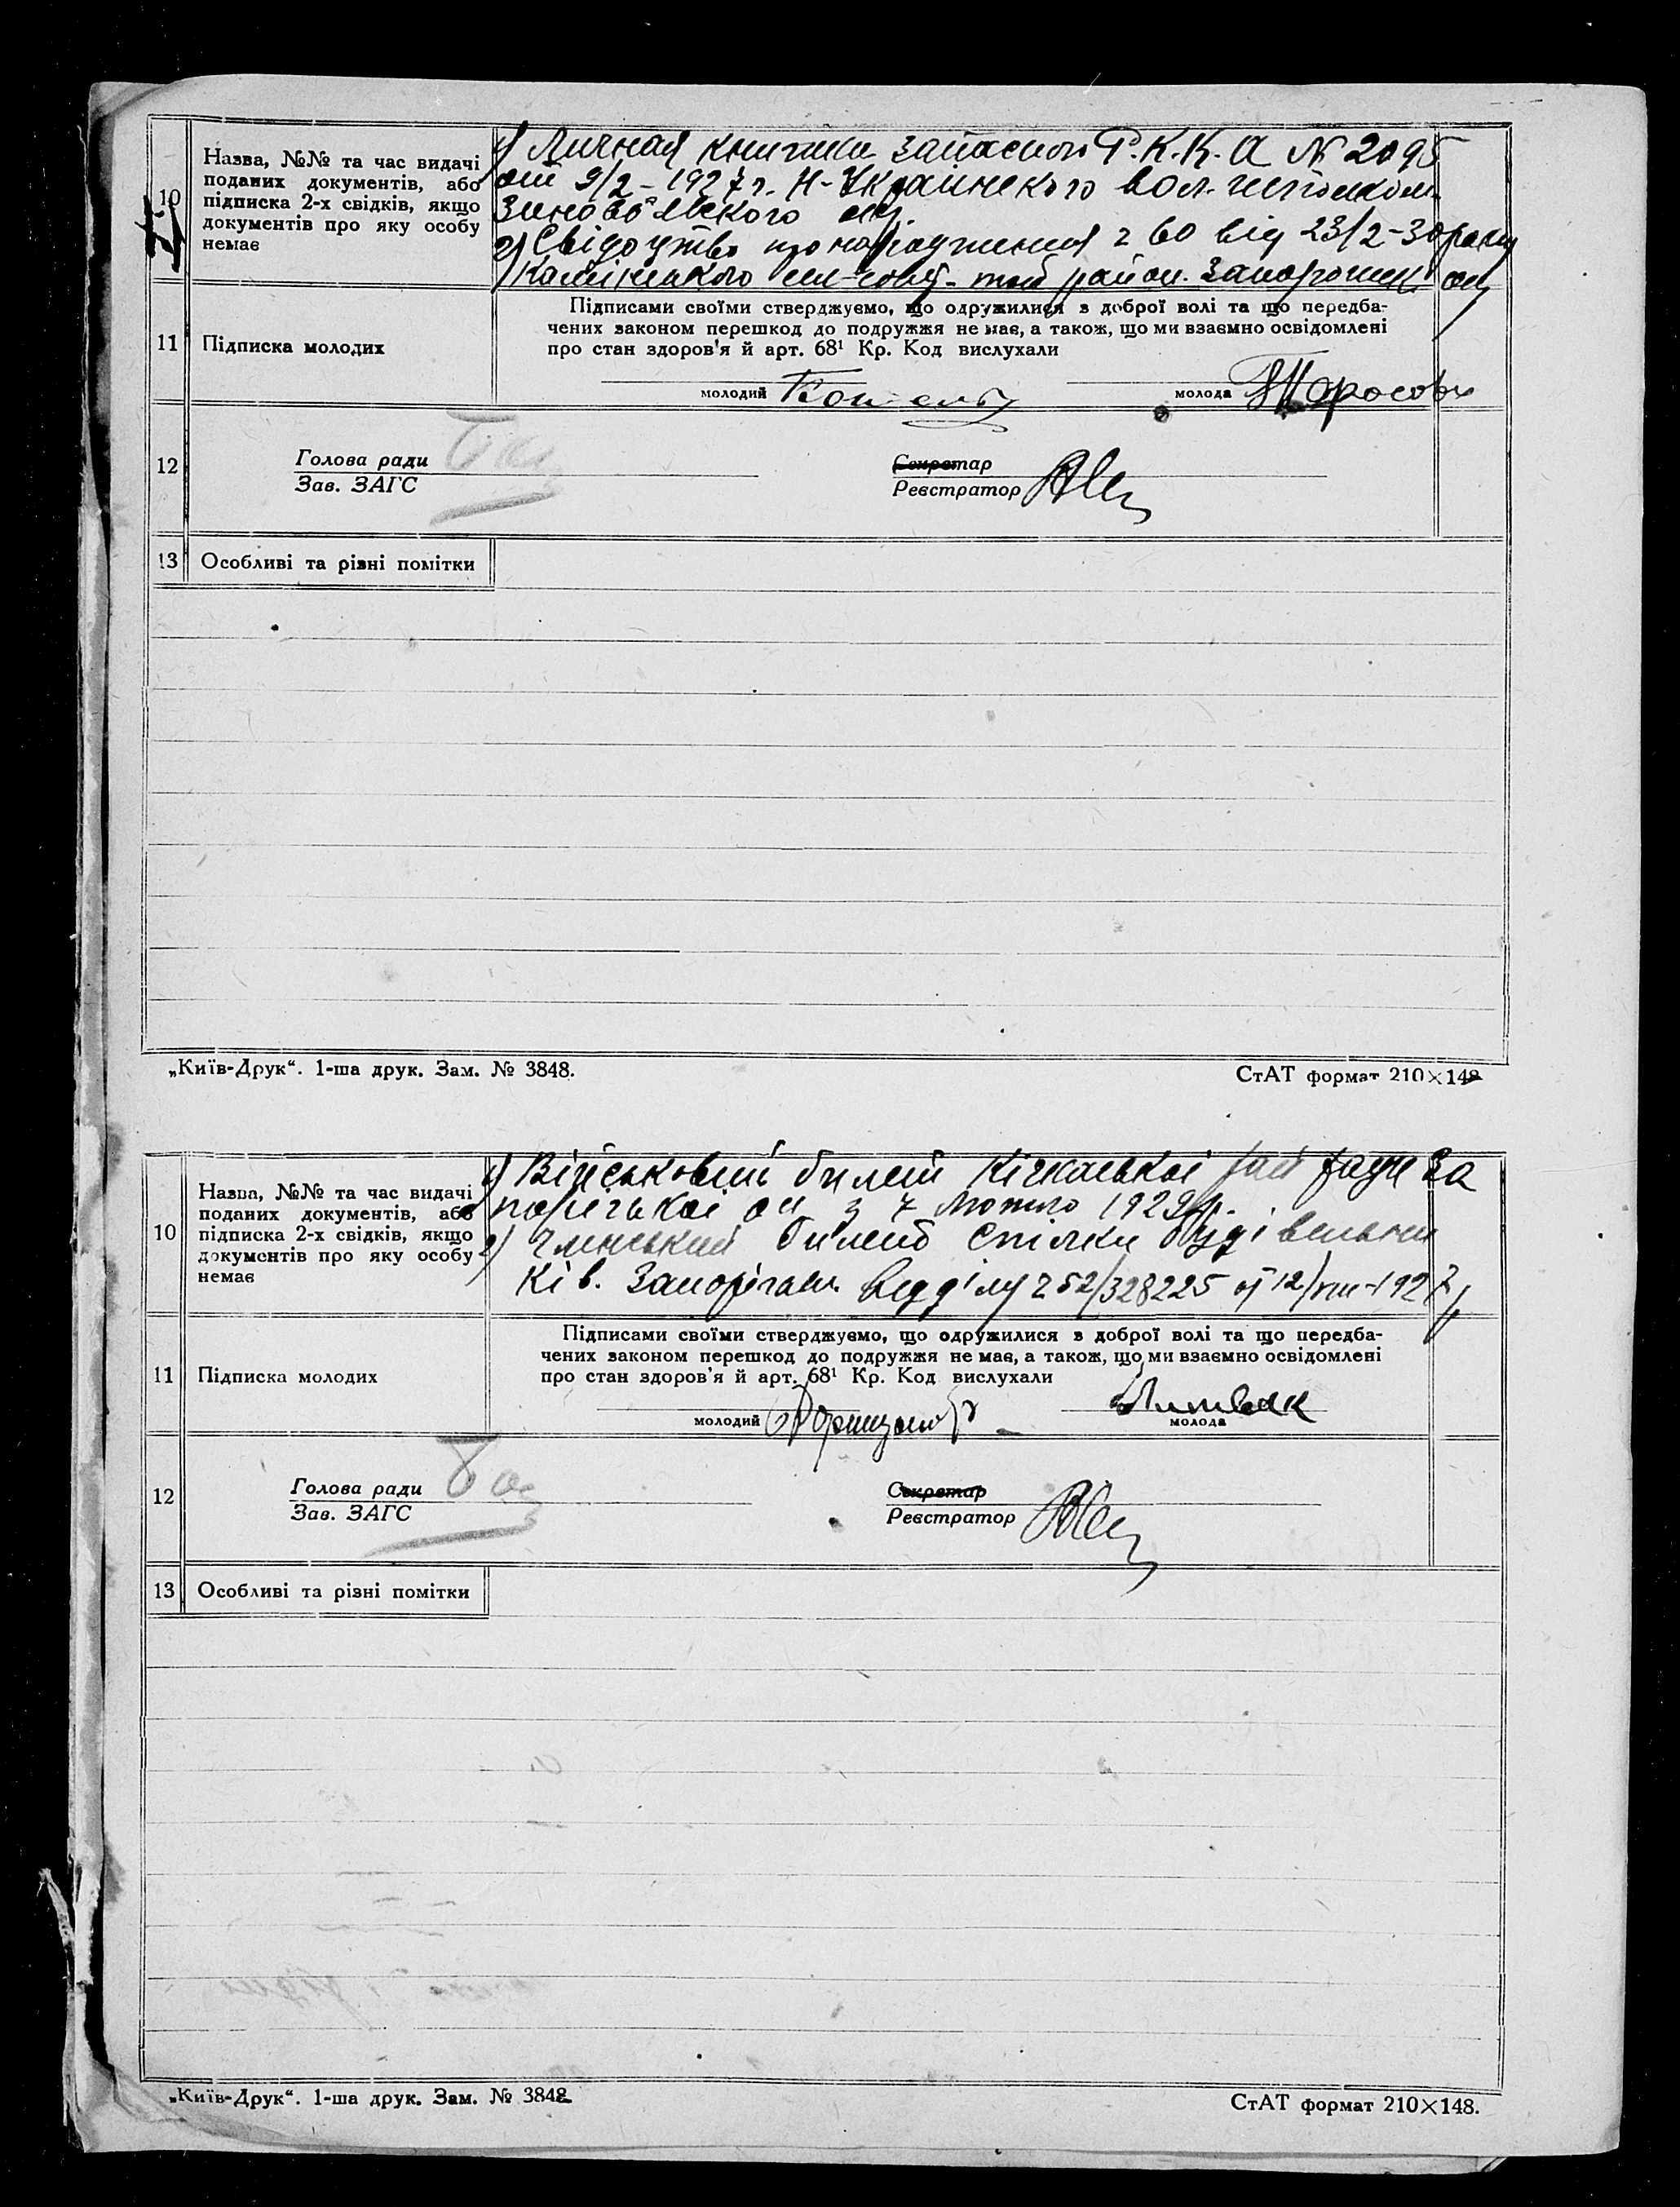 10
Назва, №№ та час видачі
поданих документів, або
підписка 2-х свідків, якщо
документів про яку особу
немає
1) Личная книжка запасного Р.К.К.А № 2095
от 9/2-1927 г. Н-Украинского вол.
Зиновьевского окр.
2) Свідоцтво про народження ч 60 від 23/2-30 року
район. Запорожск окр
11
Підписка молодих
Підписами своїми стверджуємо, що одружилися з доброї волі та що передба-
чених законом перешкод до подружжя не має, а також, що ми взаємно освідомлені
про стан здоров'я й арт. 68¹ Кр. Код вислухали
молодий
молода Тарасова
12
Голова ради
Зав. ЗАГС
Секретар
Реєстратор
13
Особливі та різні помітки
„Київ-Друк“. 1-ша друк. Зам. № 3848.
СтАТ формат 210×148
10
Назва, №№ та час видачі
поданих документів, або
підписка 2-х свідків, якщо
документів про яку особу
немає
1) Військовий билет Кічкаської рай ради За
порізької ок з 7 лютого 1929 р.
2) Членський билет Спілки Будівельни
ків. Запоріжськ. Відділу ч 52/328225 від 12/VIII-1927 р
11
Підписка молодих
Підписами своїми стверджуємо, що одружилися з доброї волі та що передба-
чених законом перешкод до подружжя не має, а також, що ми взаємно освідомлені
про стан здоров'я й арт. 68¹ Кр. Код вислухали
молодий
Литвак
молода
12
Голова ради
Зав. ЗАГС
Секретар
Реєстратор
13
Особливі та різні помітки
„Київ-Друк“. 1-ша друк. Зам. № 3848
СтАТ формат 210×148.